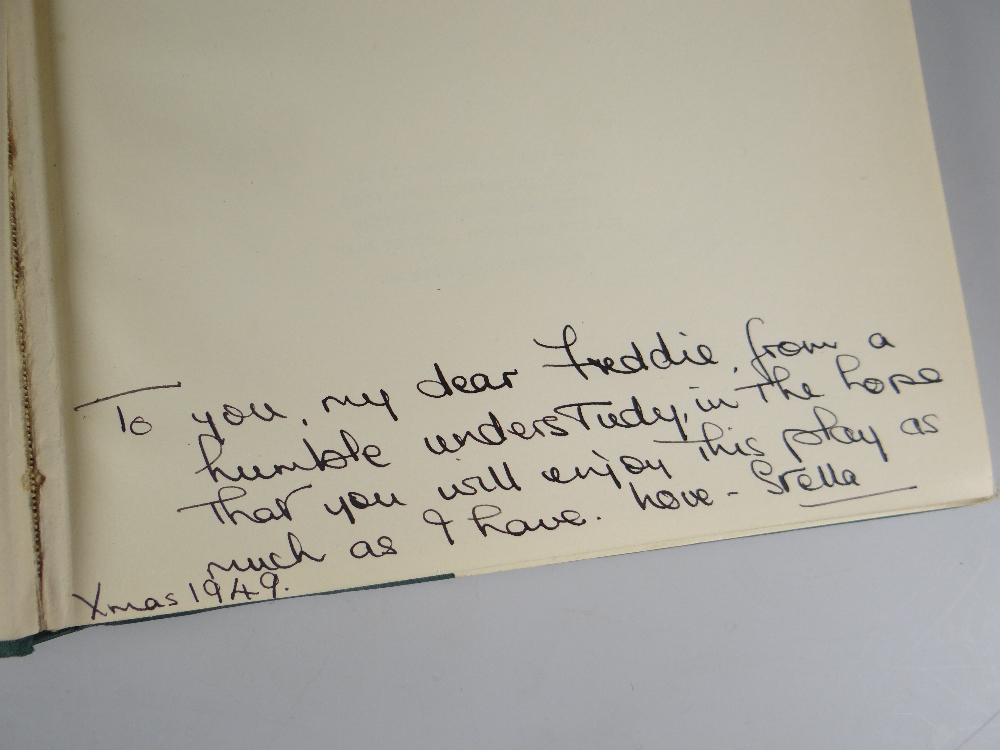 To you, my dear Freddie, from a
humble understudy, in the hope
that you will enjoy this play as
much as I have. Love - Stella
Xmas 1949.